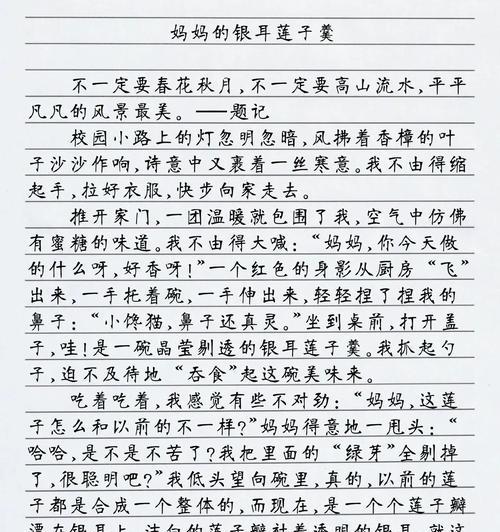 妈妈的银耳莲子羹
不一定要春花秋月,不一定要高山流水,平平
凡凡的风景最美。——题记
校园小路上的灯忽明忽暗,风拂着香樟的叶
子沙沙作响,诗意中又裹着一丝寒意。我不由得缩
起手,拉好衣服,快步向家走去。
推开家门,一团温暖就包围了我,空气中仿佛
有蜜糖的味道。我不由得大喊:“妈妈,你今天做
的什么呀,好香呀!”一个红色的身影从厨房“飞”
出来,一手托着碗,一手伸出来,轻轻捏了捏我的
鼻子:“小馋猫,鼻子还真灵。”坐到桌前,打开盖
子,哇!是一碗晶莹剔透的银耳莲子羹。我抓起勺
子,迫不及待地“吞食”起这碗美味来。
吃着吃着,我感觉有些不对劲:“妈妈,这莲
子怎么和以前的不一样?”妈妈得意地一甩头:“
哈哈,是不是不苦了?我把里面的“绿芽”全剔掉
了,很聪明吧?”我低头望向碗里,真的,以前的莲
子都是合成一个整体的,而现在,是一个个莲子瓣
漂在银耳上,洁白的莲子瓣衬着透明的银耳,就这